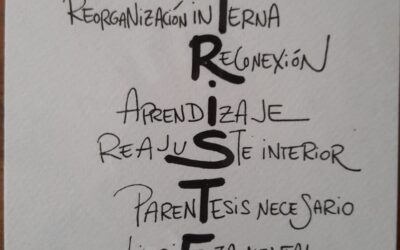 REORGANIZACIÓN INTERNA
RECONEXIÓN
APRENDIZAJE
REAJUSTE INTERIOR
PARENTESIS NECESARIO